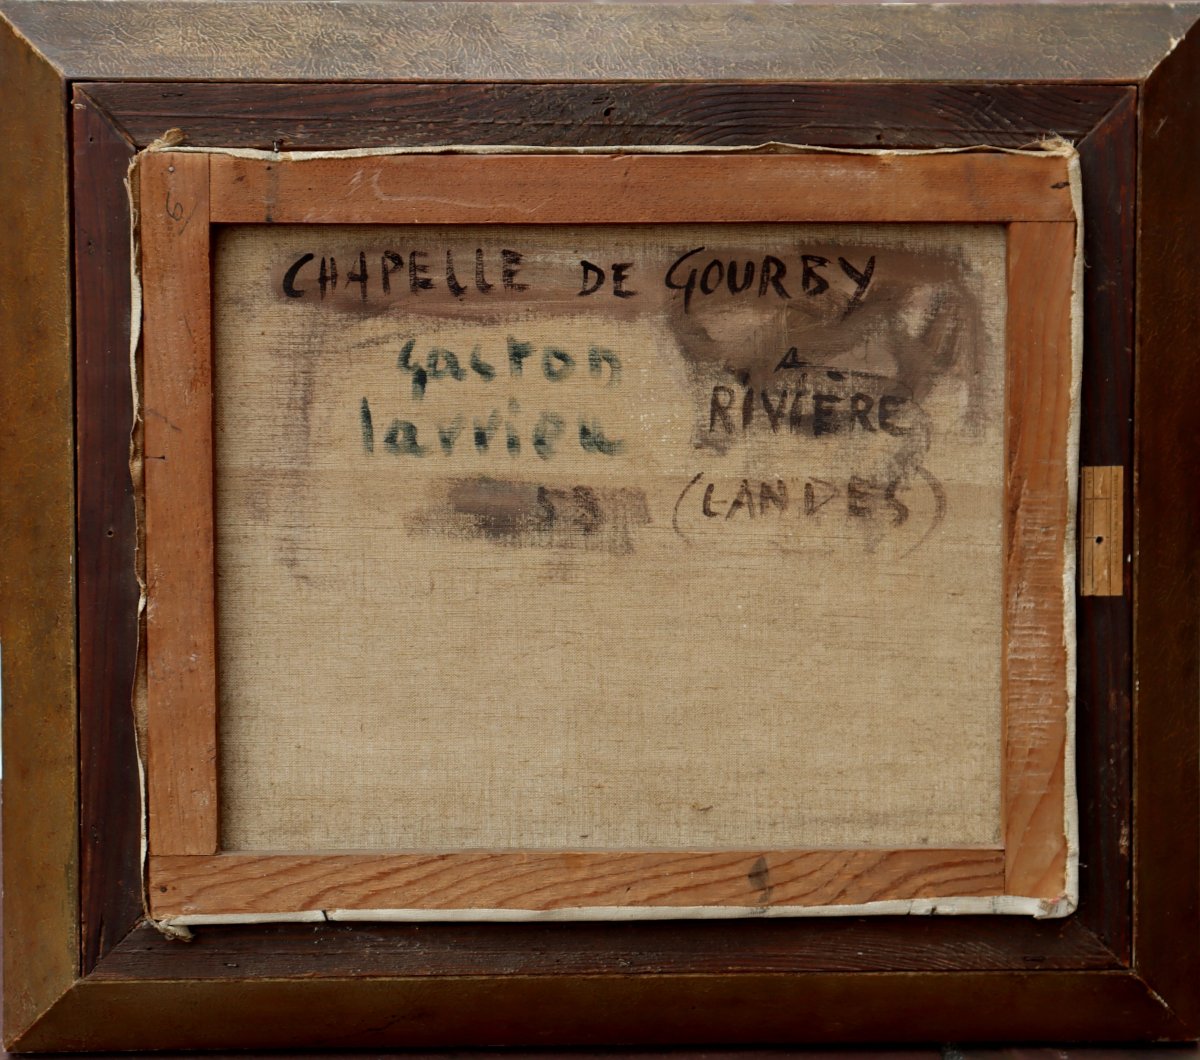 6
CHAPELLE DE GOURBY
Gaston
larrieu
A
RIVIÈRE
53
(LANDES)